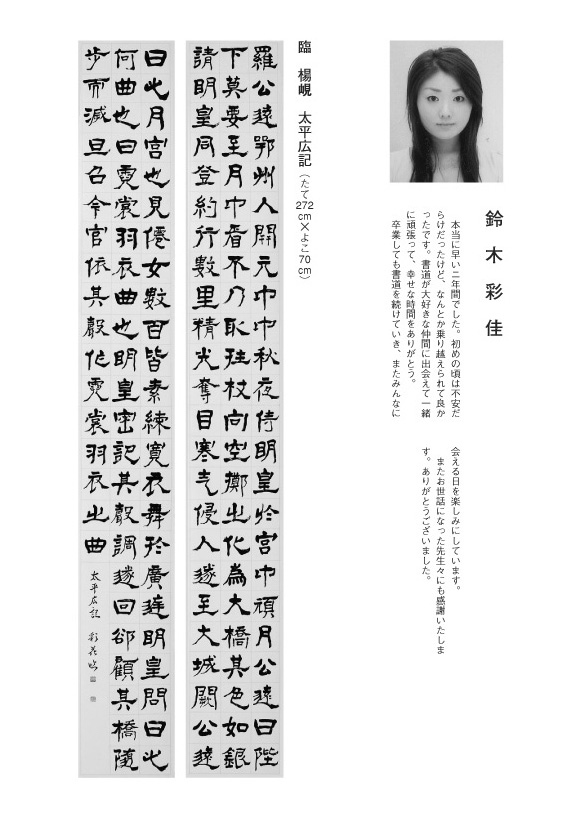 鈴木彩佳
本当に早い二年間でした。初めの頃は不安だ
らけだったけど、なんとか乗り越えられて良か
ったです。書道が大好きな仲間に出会えて一緒
に頑張って、幸せな時間をありがとう。
卒業しても書道を続けていき、またみんなに
会える日を楽しみにしています。
またお世話になった先生々にも感謝いたしま
す。ありがとうございました。
臨 楊峴 太平広記(たて272cm×よこ70cm)
羅公遠鄂州人開元中中秋夜侍明皇於宮中頑月公遠曰陛
下莫要至月中看不乃取拄杖向空擲之化為大橋其色如銀
請明皇同登約行數里精光奪目寒气侵人遂至大城闕公遠
曰此月宮也見僊女數百皆素練寬衣舞於廣庭明皇問曰此
何曲也曰霓裳羽衣曲也明皇密記其聲調遂回卻顧其橋隨
步而滅旦召令官依其聲作霓裳羽衣之曲
太平広記 彩花臨